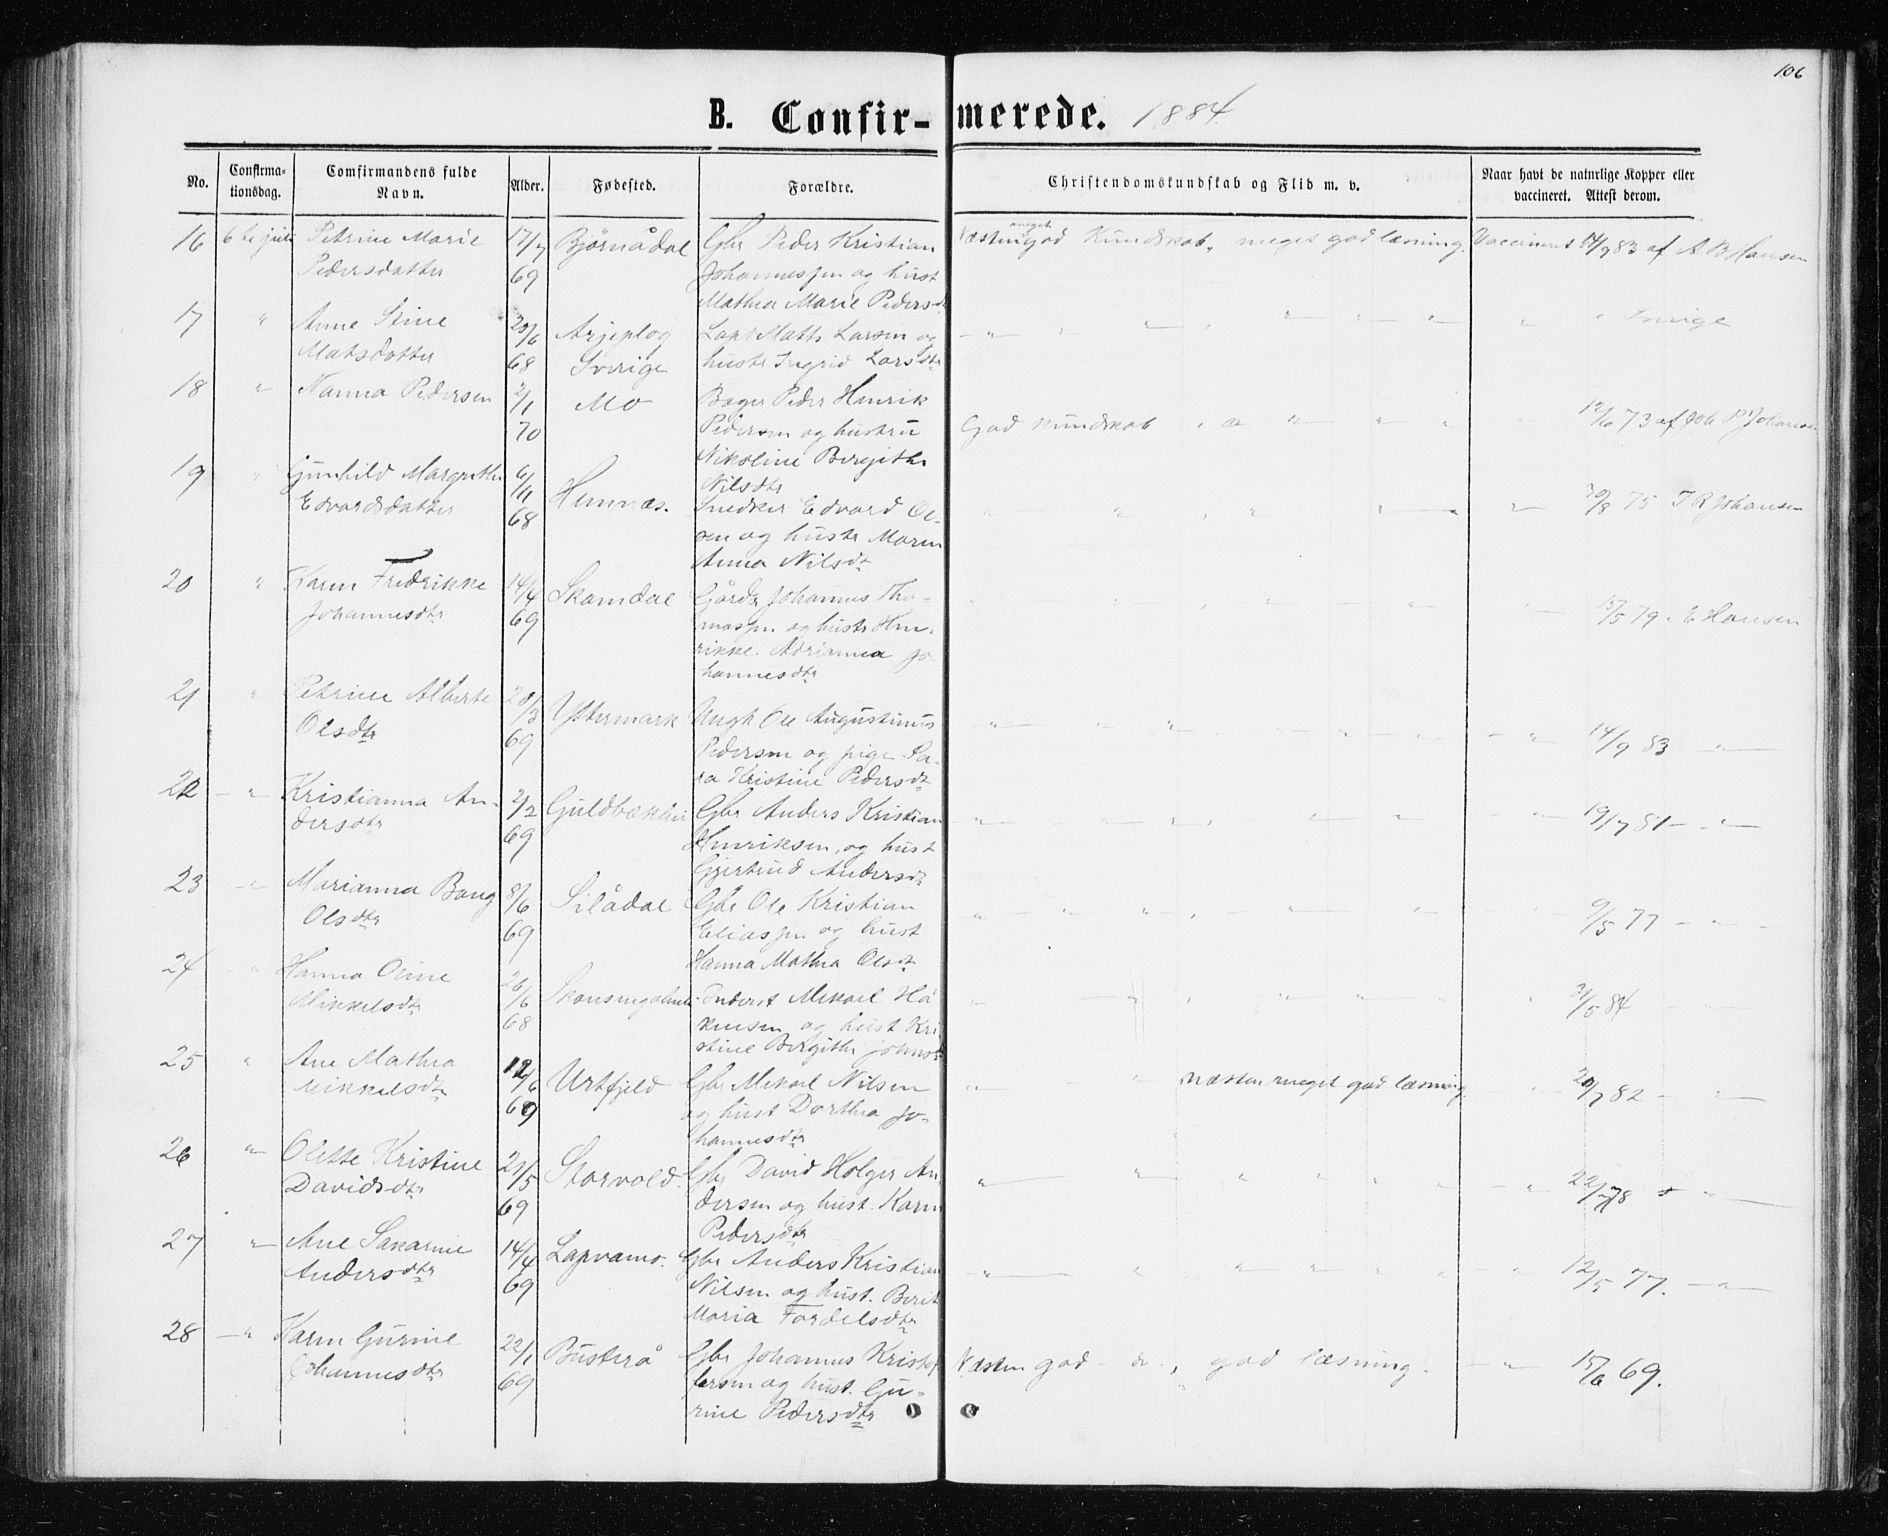 106
B. Confirmerede. 1884.
No. Confirmationsdag. Comfirmandens fulde Navn. Alder. Fødested. Forældre. Christendomskundskab og Flid m. v. Naar havt de naturlige Kopper eller vaccineret. Attest derom.
16 6te juli Petrine Marie 17/7 Bjørnådal Gbr Peder Kristian Næsten meget God Kundskab, meget god læsning. Vaccineret 14/9 83 af A B Hansen
Pedersdatter 69 Johannessen og hust
Mathea Marie Pedersdr
17 " Anne Stine 20/6 Arjeplog Lap Matts Larsen og " " " " Sverige
Matsdatter 68 Sverige hustr Ingrid Larsdtr
18 " Nanna Pedersen 2/1 Mo Bager Peder Henrik
70 Pedersen og hustru God kundskab, " " " 12/6 73 af Joh P Johansen
Nikoline Birgithe
Nilsdtr
19 " Gunhild Margrethe 6/11 Hemnæs. Snedker Edvard Ol- " " " " 30/8 75 J R Johansen
Edvardsdatter 68 sen og hustr Maren
Anna Nilsdtr
20 " Karen Fredrikke 14/4 Skamdal Gårdr Johannes Tho- " " " 15/5 79 E Hansen
Johannesdtr 69 massen og hustr Hen-
rikke Adrianna Jo-
hannesdtr
21 " Petrine Alberte 20/3 Yttermark Ungk Ole Augustinus " " " " 14/9 83 "
Olsdtr 69 Pedersen og pige Sa-
ra Kristine Pedersdtr
22 " Kristianna An- 2/2 Guldbækhei Gbr Anders Kristian " " " " 19/7 81 "
dersdtr 69 Henriksen og hust
Gjertrud Andersdtr
23 " Marianna Bang 8/6 Silådal Gbr Ole Kristian " " " " 9/5 77 "
Olsdtr 69 Eliassen og hust
Hanna Mathea Olsdtr
24 " Hanna Oline 26/6 Inderst Mikael Hå- " " " " 31/5 84
Mikkelsdtr 68 kensen og hust Kri-
stine Birgithe Johnsd
25 " Ane Mathea 12/6 Urtfjeld Gbr Mikael Nilsen " " næsten meget god læsning " 20/7 82 "
Mikkelsdtr 69 og hust Dorthea Jo-
hannesdtr
26 " Olette Kristine 21/5 Storvold. Gbr David Holger An- " " " " 22/ 78 "
Davidsdtr 69 dersen og hust. Karen
Pedersdtr
27 " Ane Sakarine 14/4 Lapvamo. Gbr Anders Kristian " " " " 12/5 77. "
Andersdtr 69 Nilsen og hust. Berit
Maria Fordelsdtr
28 " Karen Gurine 22/1 Busterå Gbr Johannes Kristof- Næsten god " , god læsning. " 15/6 69.
Johannesdtr 69 fersen og hust. Gu-
rine Pedersdtr